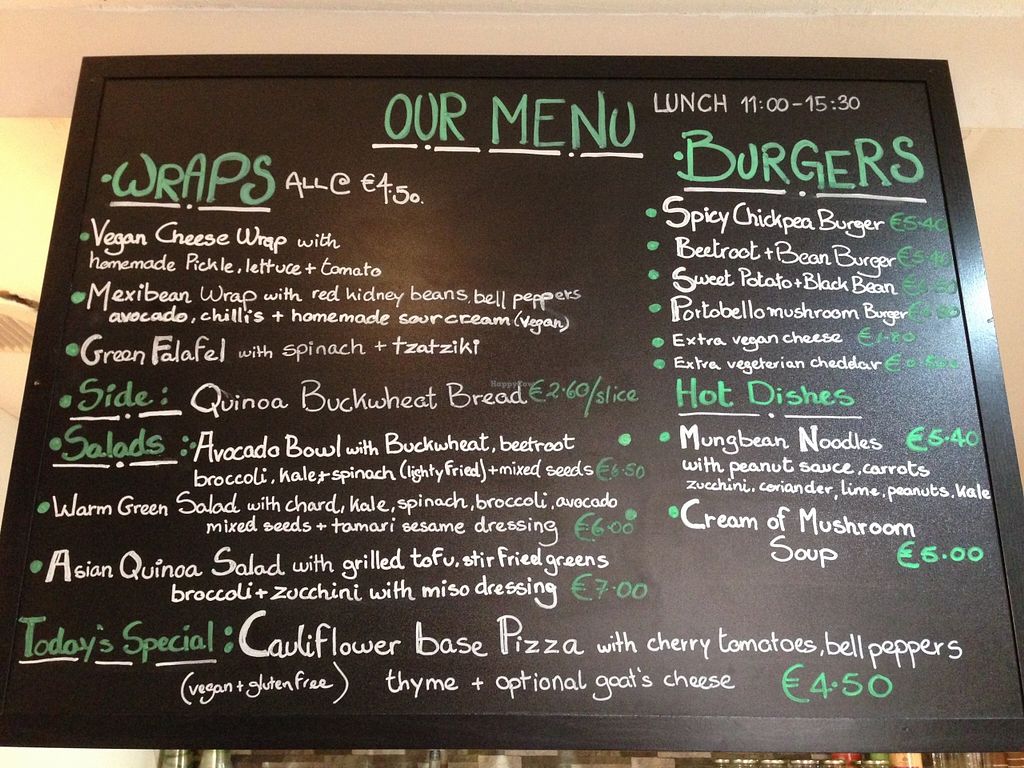 OUR MENU
LUNCH 11:00-15:30
WRAPS ALL @ €4.50.
Vegan Cheese Wrap with
homemade Pickle, lettuce + tomato
Mexibean Wrap with red kidney beans, bell peppers
avocado, chilli's + homemade sour cream (vegan)
Green Falafel with spinach + tzatziki
Side: Quinoa Buckwheat Bread €2.60/slice
Salads: Avocado Bowl with Buckwheat, beetroot
broccoli, kale + spinach (lighty fried) + mixed seeds €6.50
Warm Green Salad with chard, kale, spinach, broccoli, avocado
mixed seeds + tamari sesame dressing €6.00
Asian Quinoa Salad with grilled tofu, stir fried greens
broccoli + zucchini with miso dressing €7.00
BURGERS
Spicy Chickpea Burger €5.40
Beetroot + Bean Burger
Sweet Potato + Black Bean
Portobello mushroom Burger
Extra vegan cheese €1.80
Extra vegeterian cheddar
Hot Dishes
Mungbean Noodles €5.40
with peanut sauce, carrots
zucchini, coriander, lime, peanuts, kale
Cream of Mushroom
Soup €5.00
Today's Special: Cauliflower base Pizza with cherry tomatoes, bell peppers
(vegan + gluten free) thyme + optional goat's cheese €4.50
HappyCow